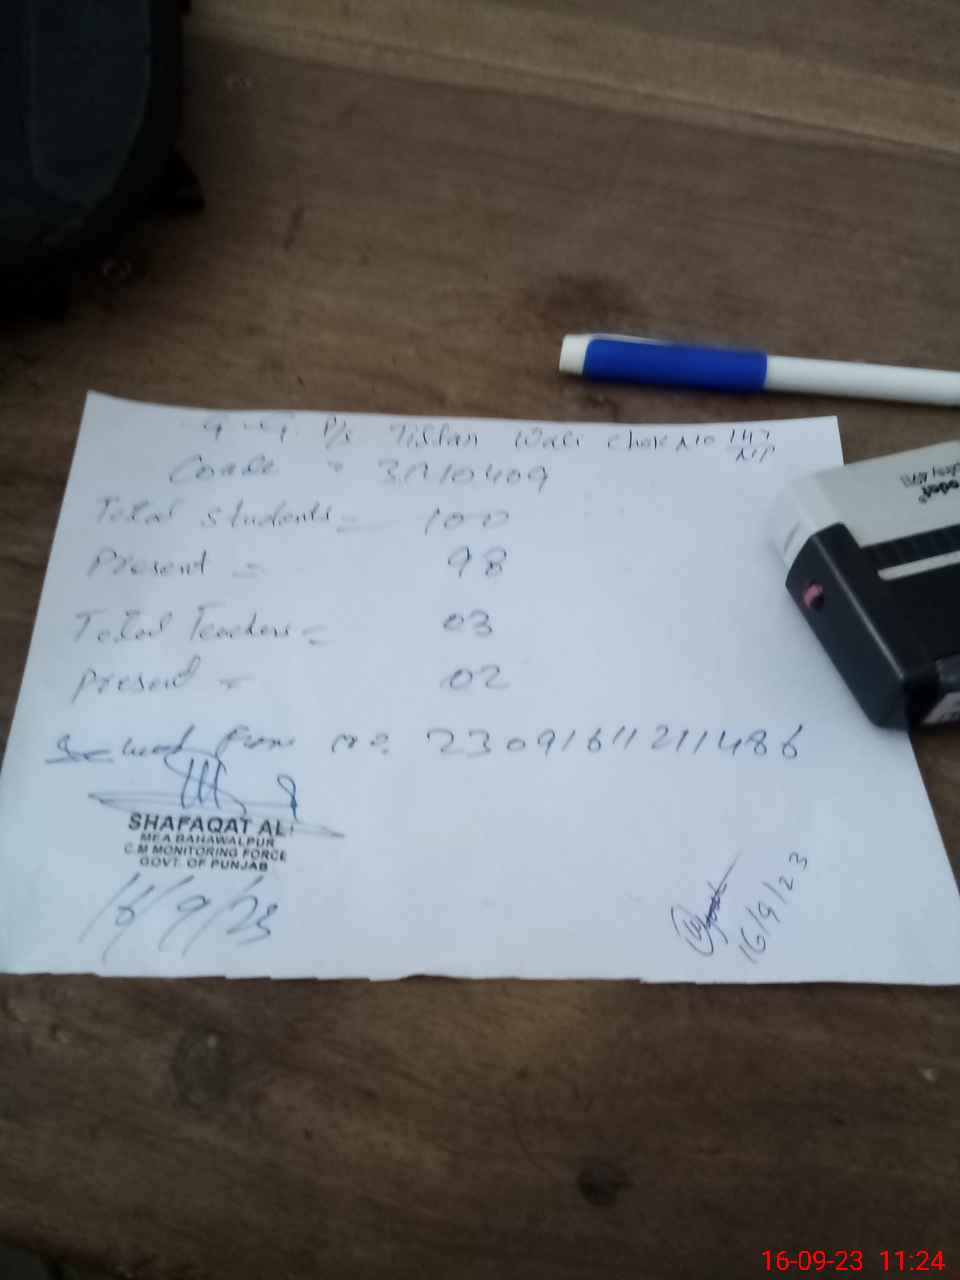 G. G. P/S Tillan Wali Chak No 147/NP
Coade =
Total Students = 100
Present = 98
Total Teachers = 03
Present = 02
no. 23091611211486
SHAFAQAT ALI
MEA BAHAWALPUR
C.M MONITORING FORCE
GOVT. OF PUNJAB
16/9/23
16/9/23
16-09-23 11:24